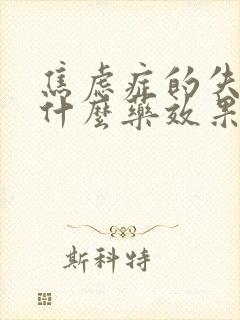 焦虑症的失
什麼藥效果
斯科特